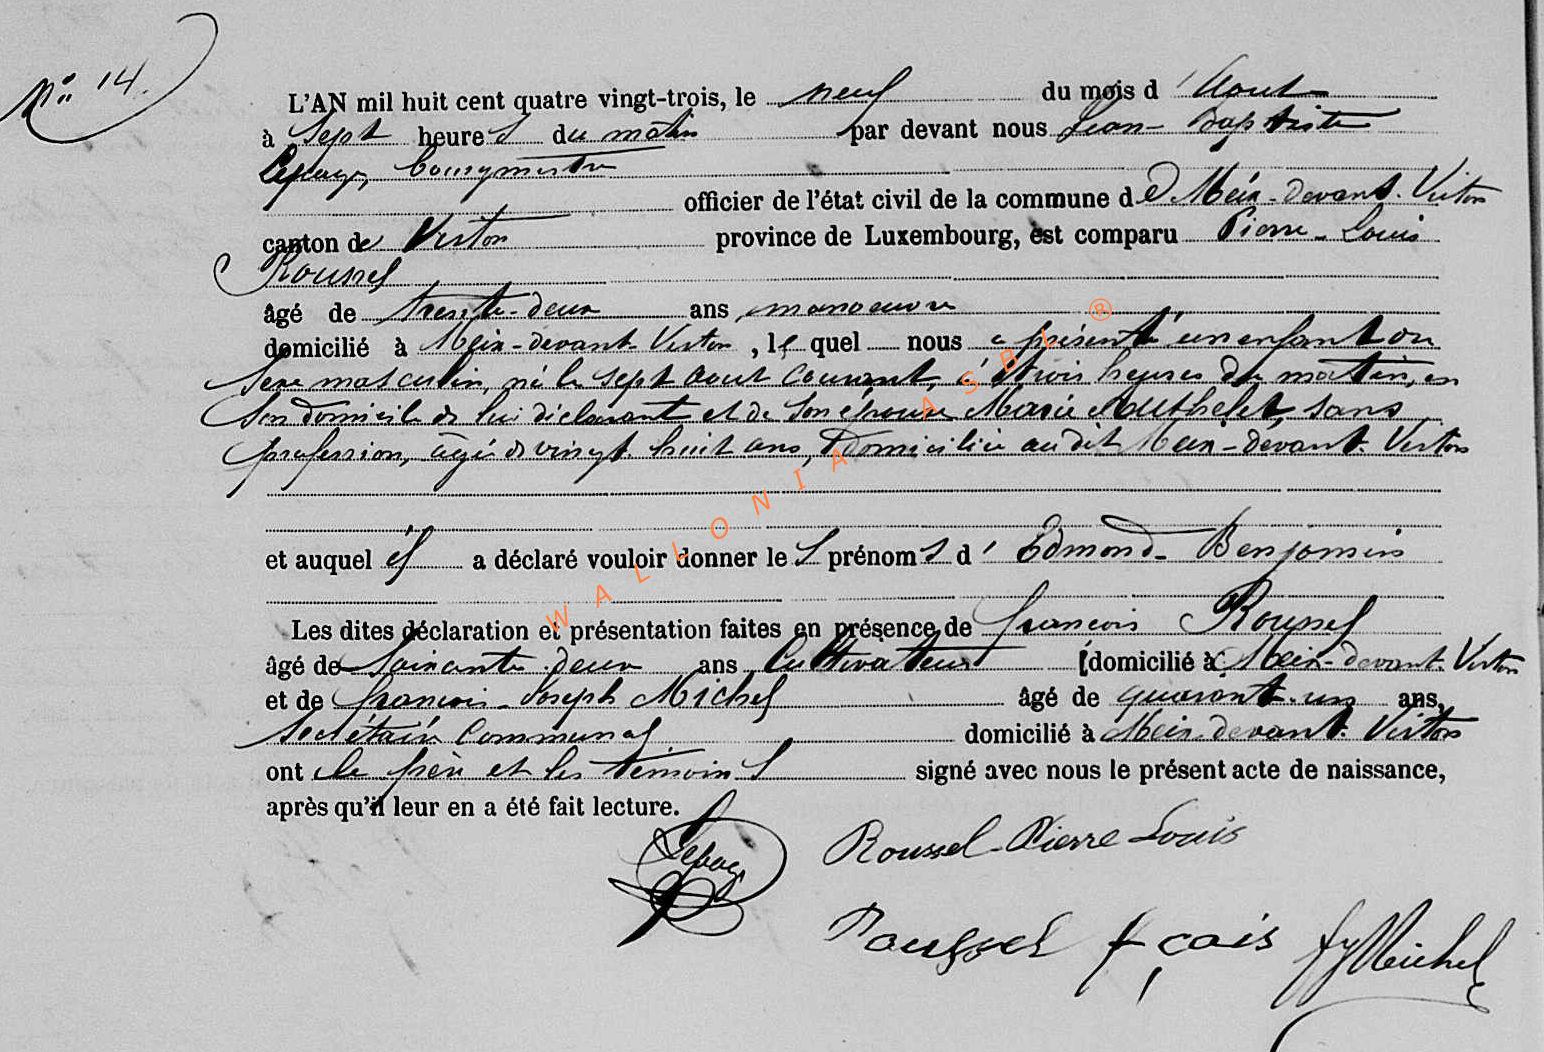 N° 14.
L'AN mil huit cent quatre vingt-trois, le neuf du mois d'Aout
à Sept heures du matin par devant nous Jean-Baptiste
Lepage, bourgmestre
officier de l'état civil de la commune de Meix-devant-Virton
canton de Virton province de Luxembourg, est comparu Pierre-Louis
Roussel
âgé de trente-deux ans, manoeuvre
domicilié à Meix-devant-Virton, lequel nous a présenté un enfant du
Sexe masculin, né le sept aout courant, à trois heures du matin, en
son domicile de lui déclarant et de son épouse Marie Mouthelet, sans
profession, âgée de vingt-huit ans, domiciliée au dit Meix-devant-Virton
et auquel il a déclaré vouloir donner les prénoms d'Edmond-Benjamin
Les dites déclaration et présentation faites en présence de François Roussel
âgé de Soixante-deux ans Cultivateur domicilié à Meix-devant-Virton
et de François-Joseph Michel âgé de quarante-un ans,
Secrétaire Communal domicilié à Meix-devant-Virton
ont le père et les témoins signé avec nous le présent acte de naissance,
après qu'il leur en a été fait lecture.
Lepage
Roussel-Pierre Louis
Roussel fçois
fj Michel
WALLONIA ASBL ®